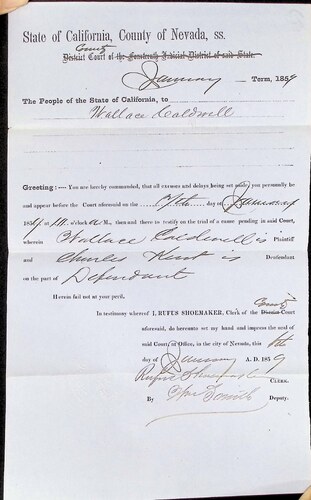 State of California, County of Nevada, ss.
County
District Court of the Fourteenth Judicial District of said State.
January Term, 1859
The People of the State of California, to
Wallace Caldwell
Greeting:—You are hereby commanded, that all excuses and delays being set aside, you personally be
and appear before the Court aforesaid on the 7th day of January
1859, at 10 o'clock A M., then and there to testify on the trial of a cause pending in said Court,
wherein Wallace Caldwell is Plaintiff
and Charles Kent is Defendant
on the part of Defendant
Herein fail not at your peril.
County
In testimony whereof I, RUFUS SHOEMAKER, Clerk of the District Court
aforesaid, do hereunto set my hand and impress the seal of
said Court, at Office, in the city of Nevada, this 6th
day of January A. D. 1859
Rufus Shoemaker CLERK.
By Wm Smith Deputy.